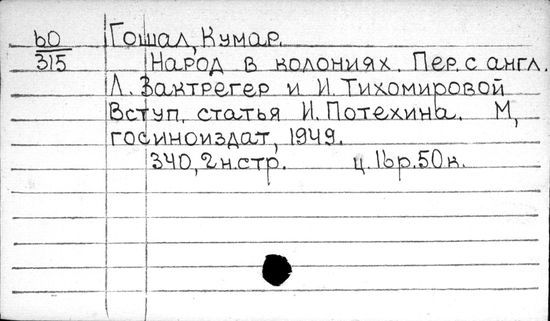 60 Гошал, Кумар.
315 Народ в колониях. Пер. с англ.
Л. Зактрегер и И. Тихомировой
Вступ. статья И. Потехина. М,
госиноиздат, 1949.
340, 2 н. стр. ц. 16 р. 50 к.